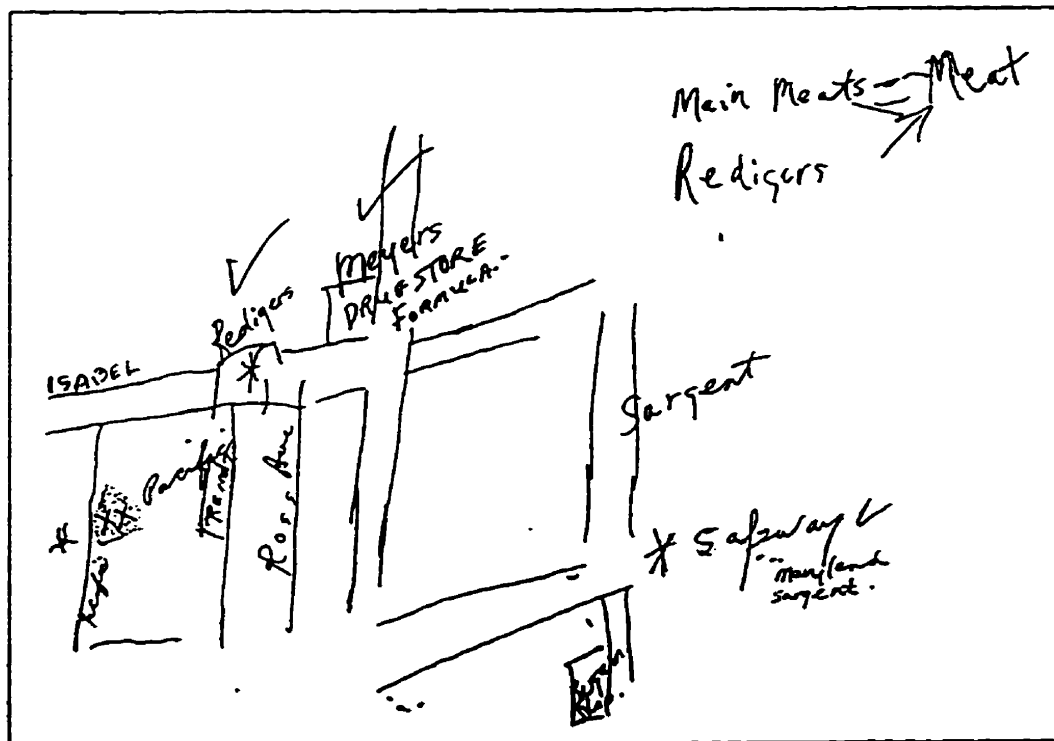 Main Meats Meat
Redigers
Meyers
DRUGSTORE
FORMULA..
Redigers
ISABEL
Sargent
Pacific
Ross Ave
* Safeway
Maryland
Sargent.